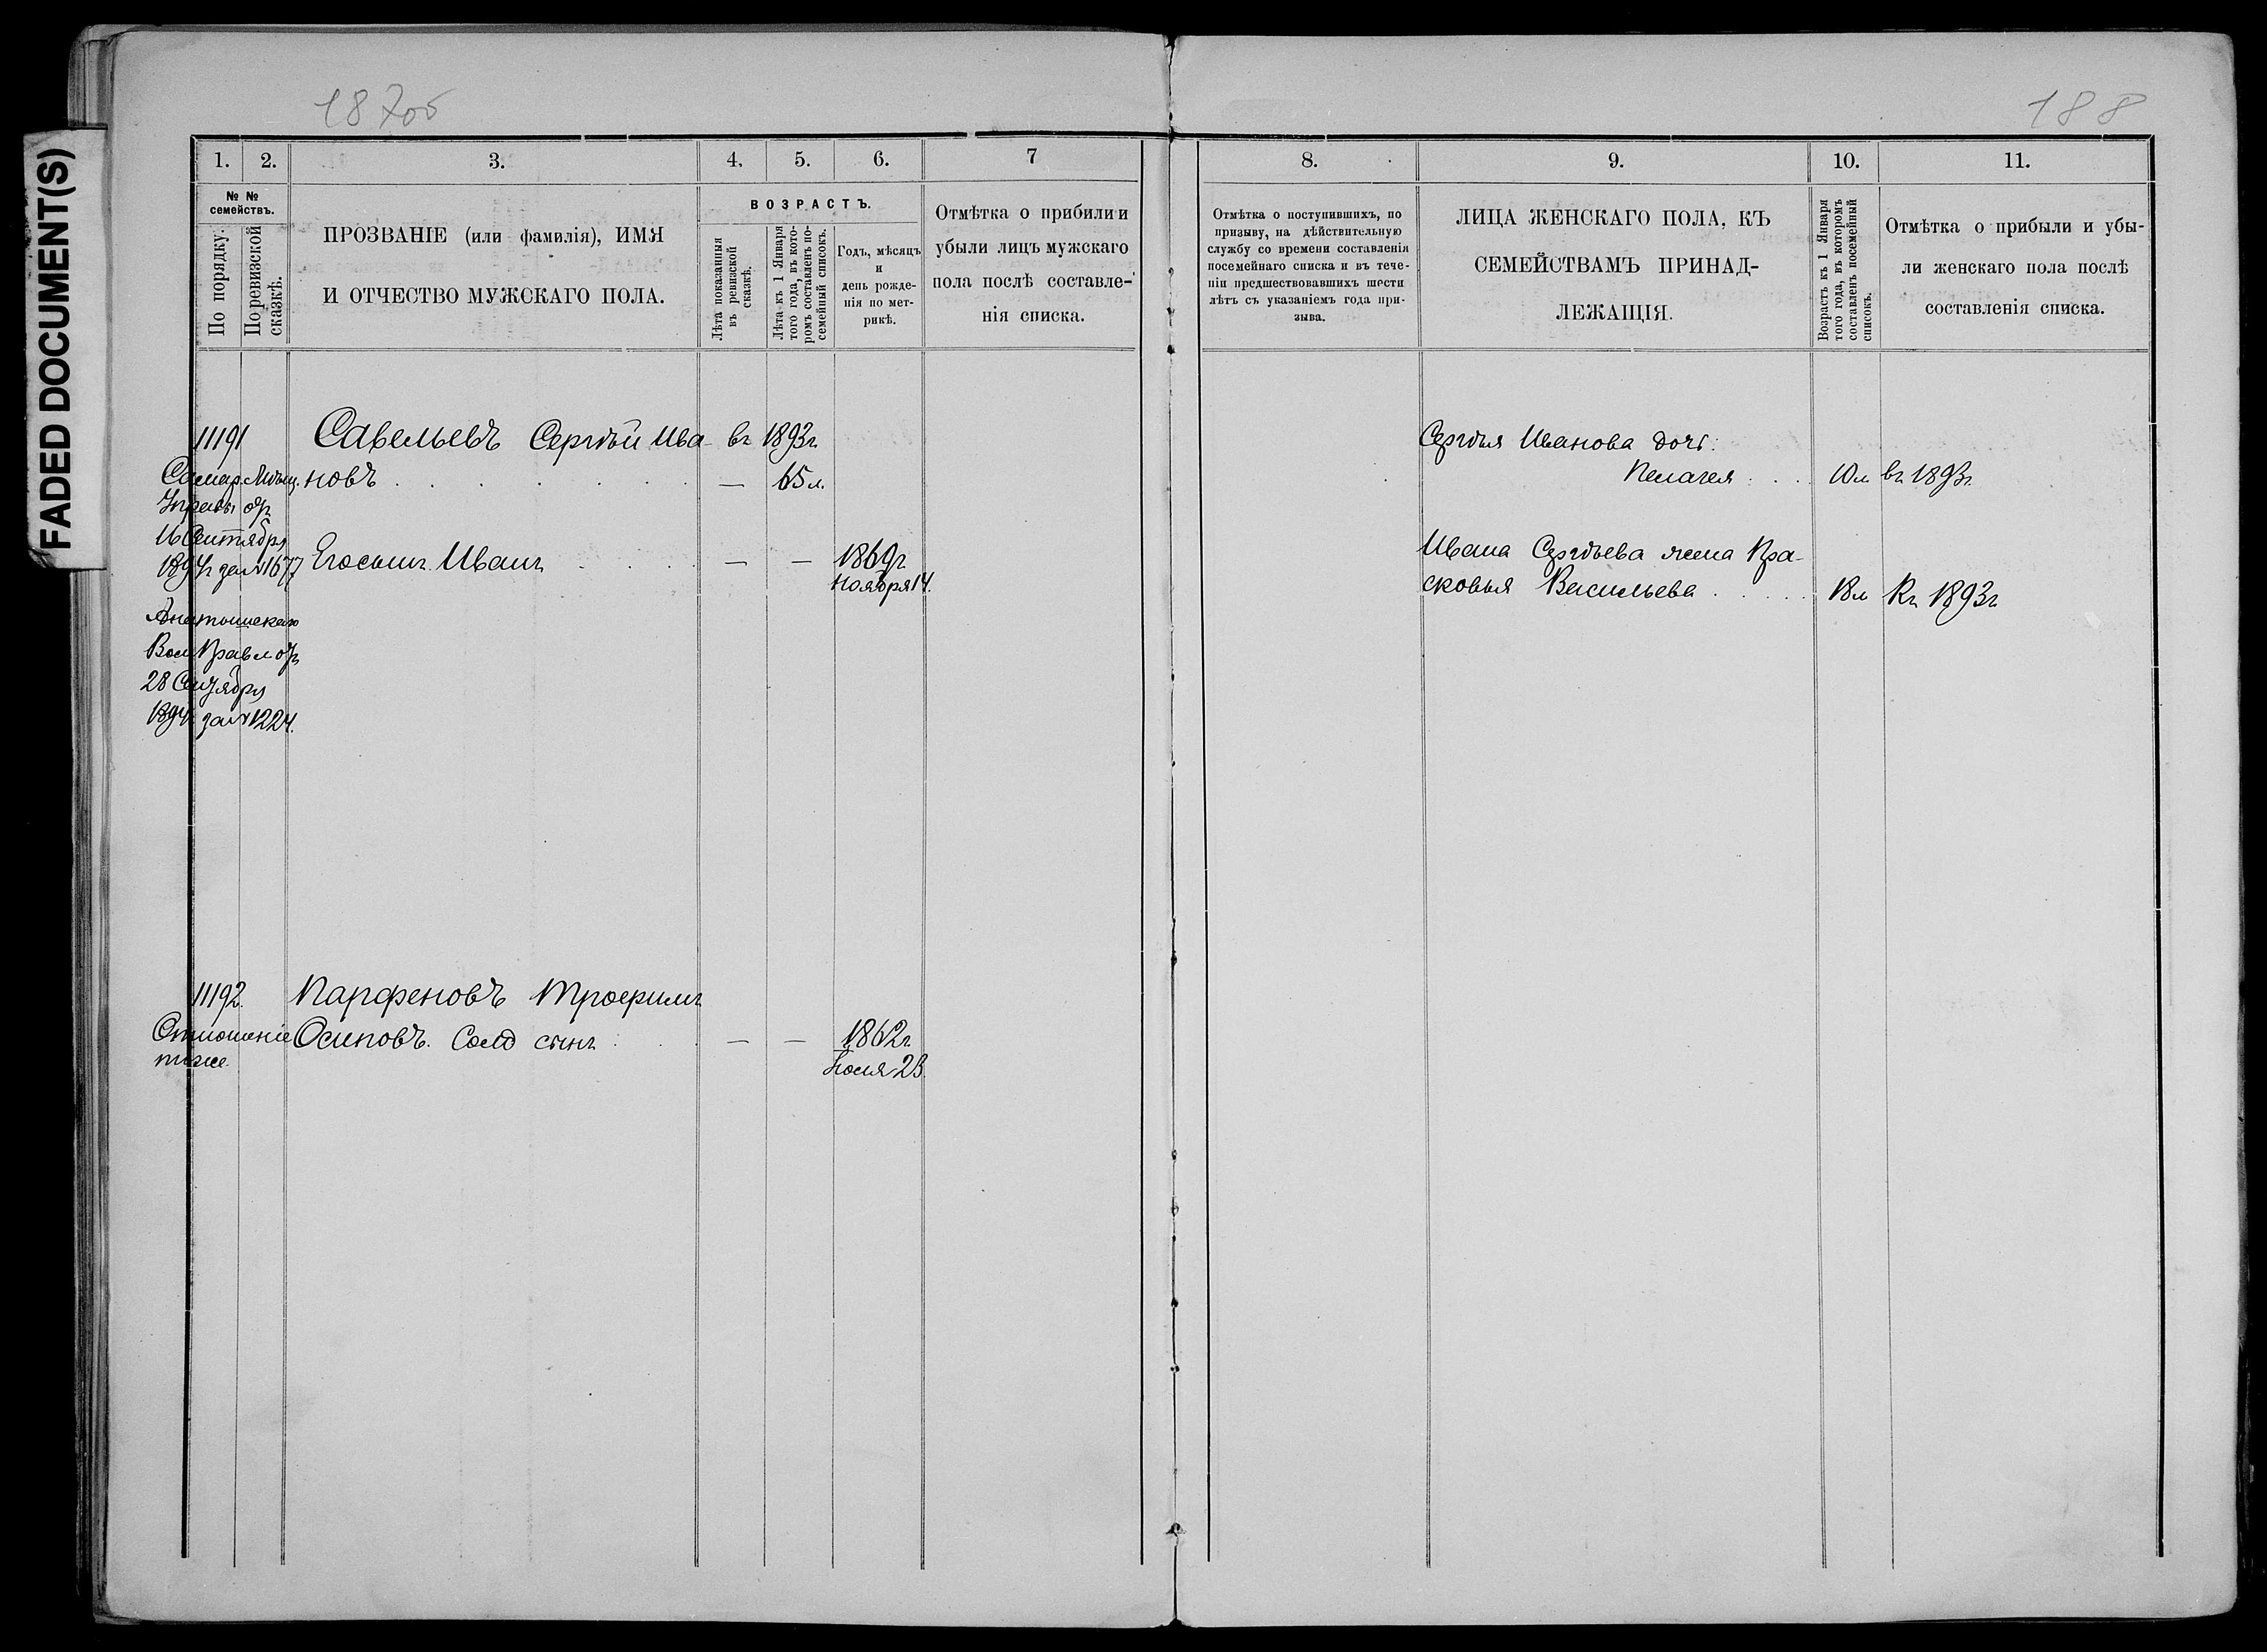 FADED DOCUMENT(S)
187об
188
1. 2. 3. 4. 5. 6. 7
№ № семействъ.
По порядку.
По ревизской сказкѣ.
ПРОЗВАНІЕ (или фамилія), ИМЯ
И ОТЧЕСТВО МУЖСКАГО ПОЛА.
ВОЗРАСТЪ.
Лѣта показанныя
въ ревизской
сказкѣ.
Лѣта къ 1 Января
того года, въ кото-
ромъ составленъ по-
семейный списокъ.
Годъ, мѣсяцъ
и
день рожде-
нія по мет-
рикѣ.
Отмѣтка о прибыли и
убыли лицъ мужскаго
пола послѣ составле-
нія списка.
8. 9. 10. 11.
Отмѣтка о поступившихъ, по
призыву, на дѣйствительную
службу со времени составленія
посемейнаго списка и въ тече-
ніи предшествовавшихъ шести
лѣтъ съ указаніемъ года при-
зыва.
ЛИЦА ЖЕНСКАГО ПОЛА, КЪ
СЕМЕЙСТВАМЪ ПРИНАД-
ЛЕЖАЩІЯ.
Возрастъ къ 1 Января
того года, въ которомъ
составленъ посемейный
списокъ.
Отмѣтка о прибыли и убы-
ли женскаго пола послѣ
составленія списка.
11191 Савельевъ Сергѣй Ива- въ 1893г.
новъ — 65 л.
Самар. Мѣщ.
Управы отъ
16 Сентября
1894г за №1677
Его сынъ Иванъ — — 1869г
Ноября 14.
Вол Правл отъ
28 Сентября
1894 за №1224.
Сергѣя Иванова дочь:
Пелагея 10л въ 1893г.
Ивана Сергѣева жена Пра-
сковья Васильева 18л Къ 1893г
11192. Парфеновъ Трофимъ
Отношеніе Осиповъ. Солд сынъ — — 1862г
тоже. Іюля 23.